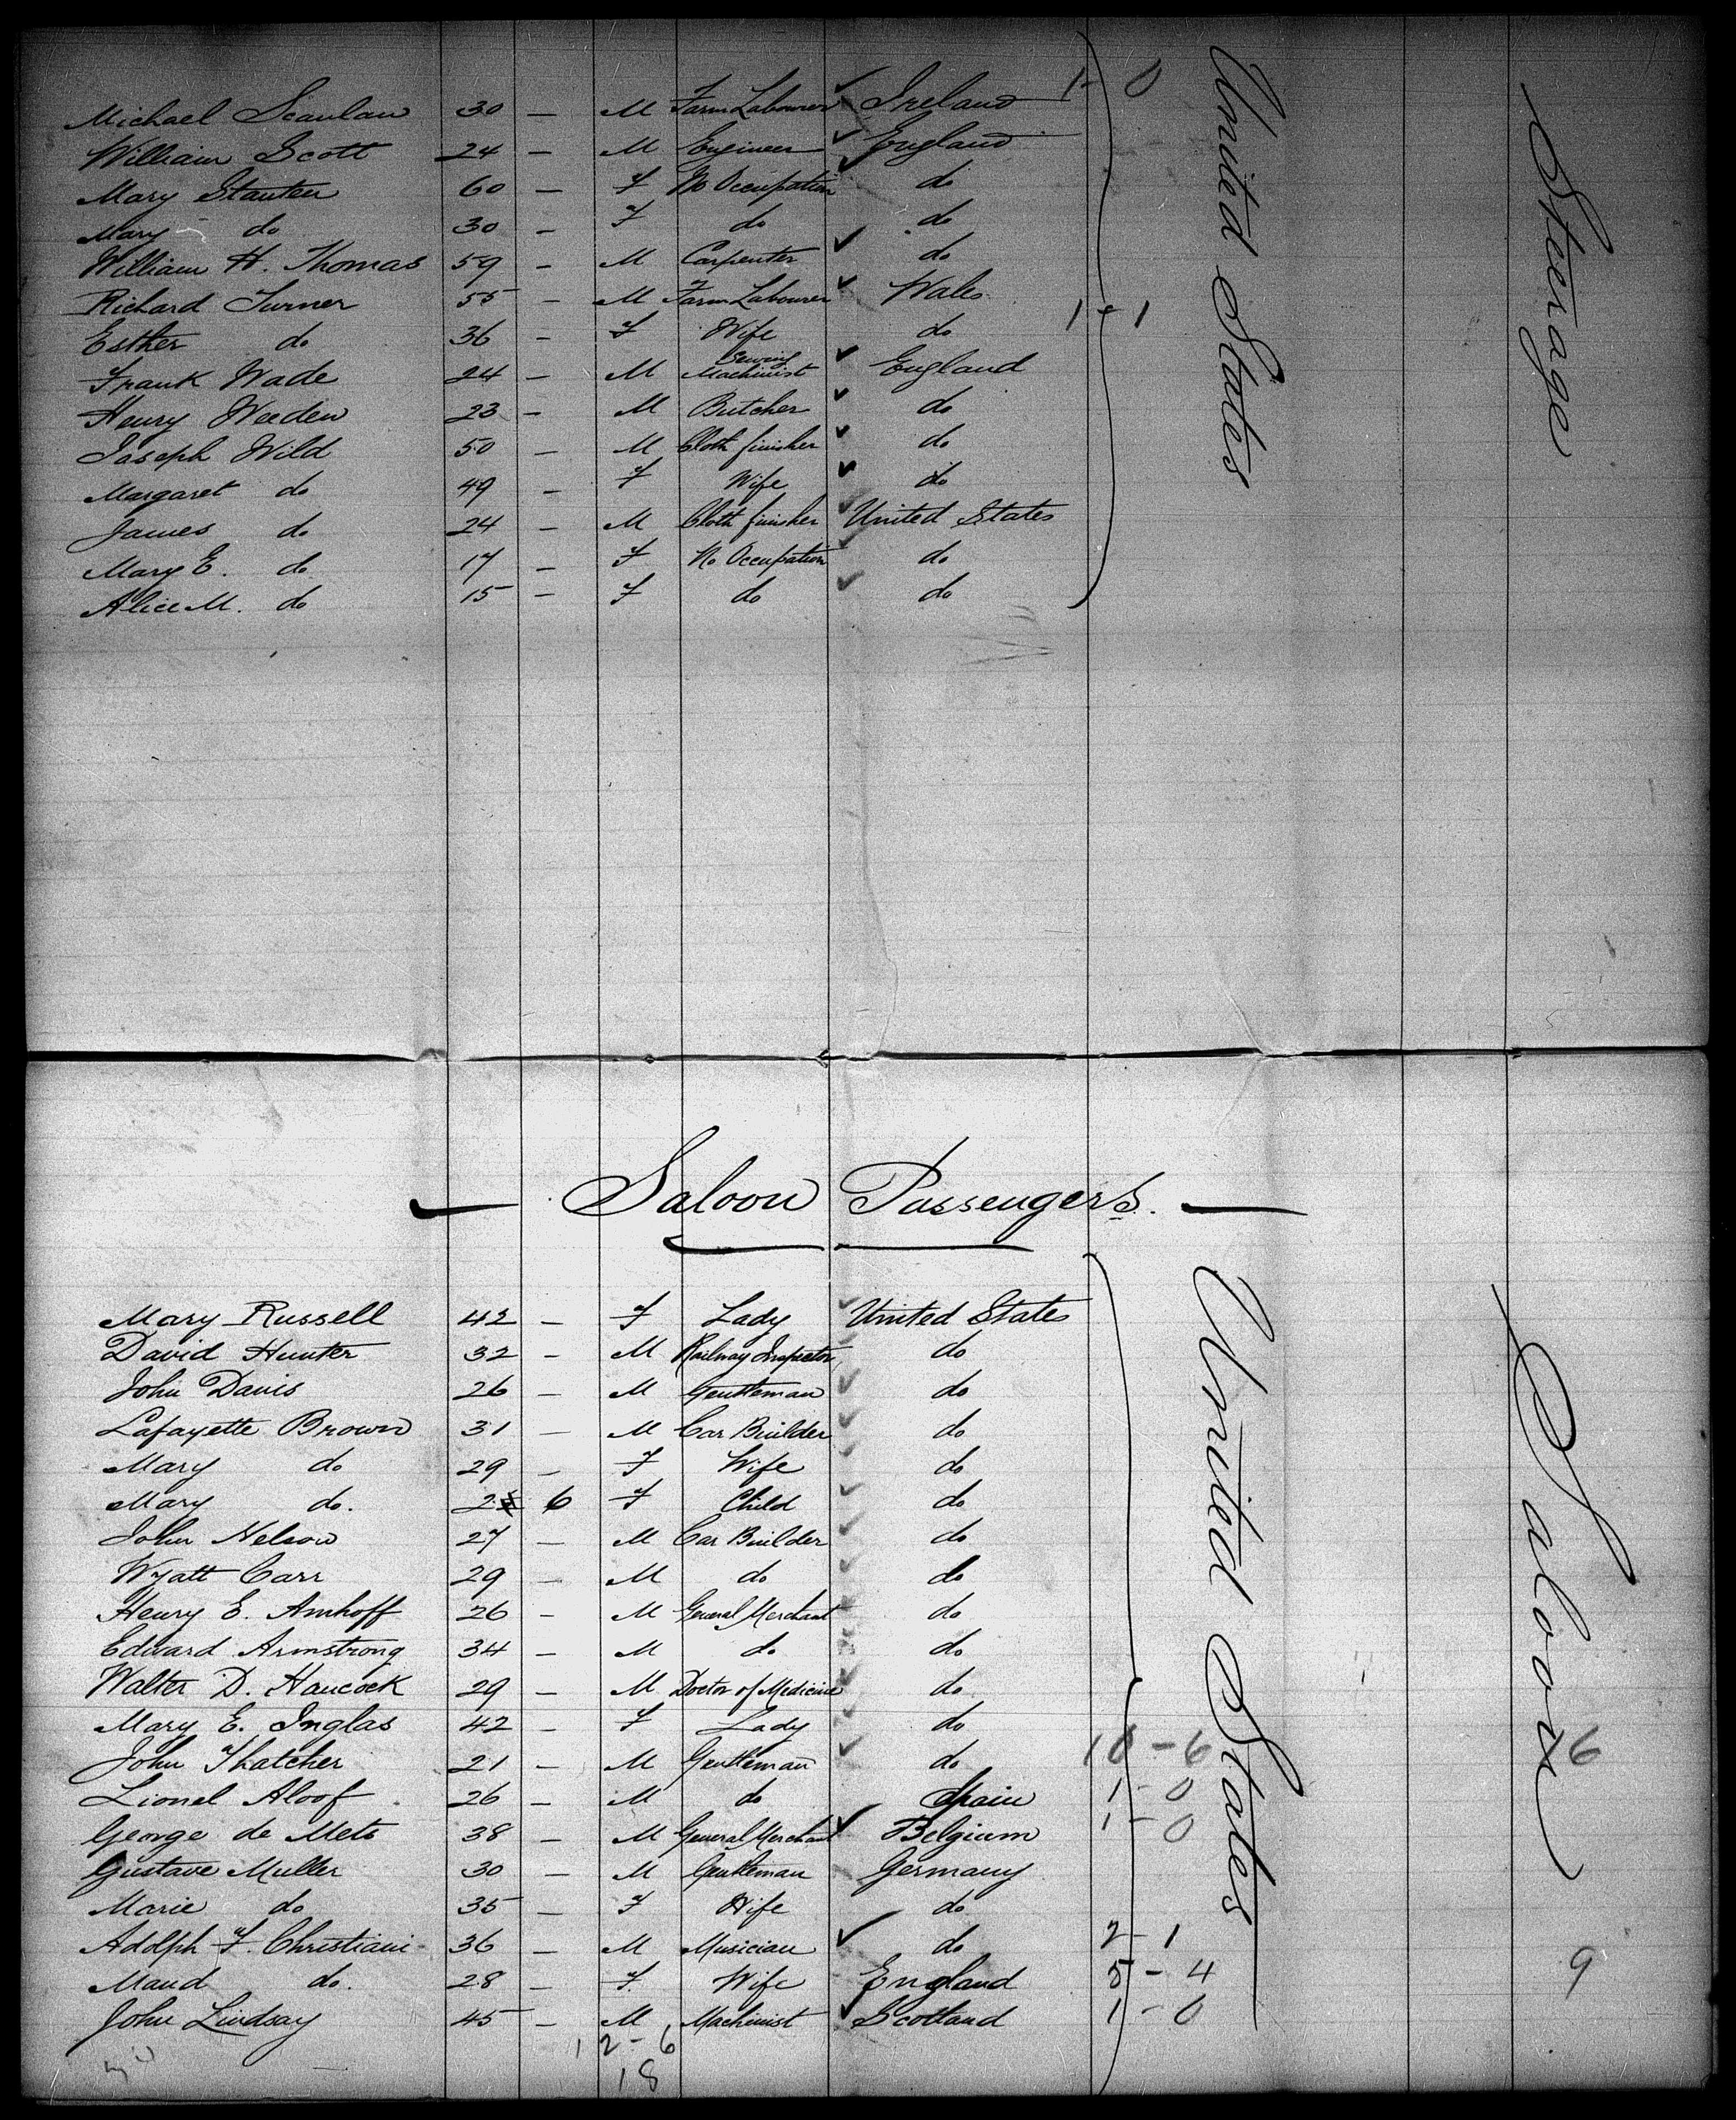 Michael Scanlan 30 — M Farm Labourer ✓ Ireland 1-0
William Scott 24 — M Engineer ✓ England
Mary Stanten 60 — F No Occupation ✓ do
Mary do 30 — F do do
William H. Thomas 59 — M Carpenter ✓ do
Richard Turner 55 — M Farm Labourer ✓ Wales
Esther do 36 — F Wife do 1-1
Frank Wade 24 — M Sewing Machinist ✓ England
Henry Weeden 23 — M Butcher ✓ do
Joseph Wild 50 — M Cloth finisher ✓ do
Margaret do 49 — F Wife ✓ do
James do 24 — M Cloth finisher ✓ United States
Mary E. do 17 — F No Occupation ✓ do
Alice M. do 15 — F do ✓ do
United States
Steerage
— Saloon Passengers. —
Mary Russell 42 — F Lady ✓ United States
David Hunter 32 — M Railway Inspector do
John Davis 26 — M Gentleman ✓ do
Lafayette Brown 31 — M Car Builder ✓ do
Mary do 29 — F Wife ✓ do
Mary do. 2 6 F Child ✓ do
John Nelson 27 — M Car Builder ✓ do
Wyatt Carr 29 — M do ✓ do
Henry E. Amhoff 26 — M General Merchant do
Edward Armstrong 34 — M do do
Walter D. Hancock 29 — M Doctor of Medicine do
Mary E. Inglas 42 — F Lady ✓ do
John Thatcher 21 — M Gentleman ✓ do 10-6 16
Lionel Aloof 26 — M do Spain 1-0
George de Mets 38 — M General Merchant ✓ Belgium 1-0
Gustave Muller 30 — M Gentleman Germany
Marie do 35 — F Wife do
Adolph F. Christiani 36 — M Musician ✓ do 2-1
Maud do. 28 — F. Wife England 5-4 9
John Lindsay 45 — M Machinist ✓ Scotland 1-0
12-6
18
United States
Saloon